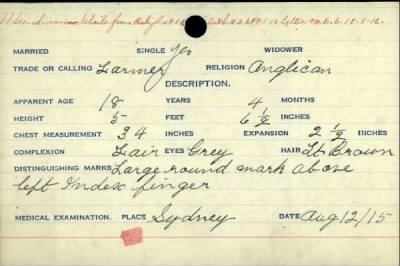 MARRIED SINGLE yes WIDOWER
TRADE OR CALLING Farmer RELIGION Anglican
DESCRIPTION.
APPARENT AGE 18 YEARS 4 MONTHS
HEIGHT 5 FEET 6 1/2 INCHES
CHEST MEASUREMENT 34 INCHES EXPANSION 2 1/2 INCHES
COMPLEXION Fair EYES Grey HAIR Lt Brown
DISTINGUISHING MARKS Large round mark above
left Index finger
MEDICAL EXAMINATION. PLACE Sydney DATE Aug 12/15